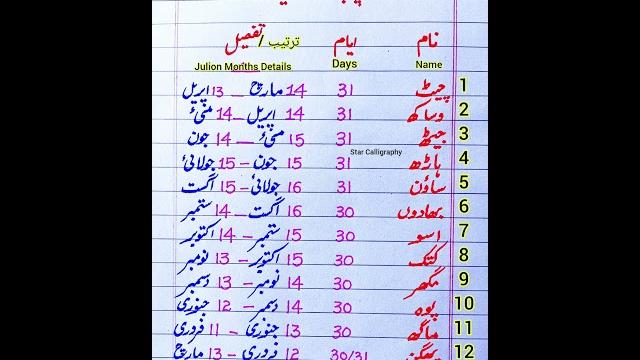 نام ایام ترتیب / تفصیل
Name Days Julion Months Details
1 چیٹ 31 14 مارچ – 13 اپریل
2 وساکھ 31 14 اپریل – 14 مئی
3 جیٹھ 31 15 مئی – 14 جون
Star Calligraphy
4 ہاڑھ 31 15 جون – 15 جولائی
5 ساؤن 31 16 جولائی – 15 اگست
6 بھادوں 30 16 اگست – 14 ستمبر
7 اسو 30 15 ستمبر – 14 اکتوبر
8 کتک 30 15 اکتوبر – 13 نومبر
9 مگھر 30 14 نومبر – 13 دسمبر
10 پوہ 30 14 دسمبر – 12 جنوری
11 ماگھ 30 13 جنوری – 11 فروری
12 پھگن 30/31 12 فروری – 13 مارچ